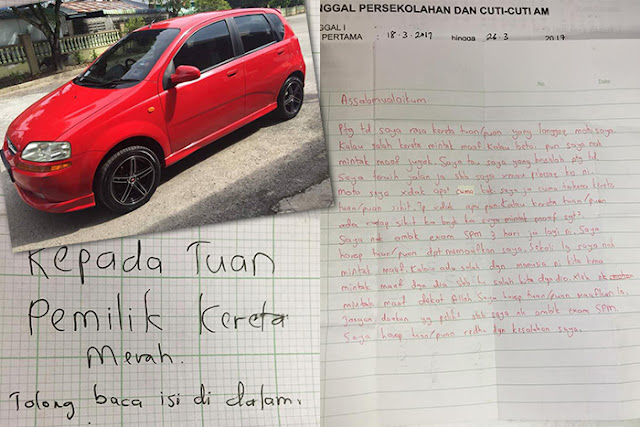 Kepada Tuan
Pemilik Kereta
Merah.
Tolong baca isi di dalam.
NGGAL PERSEKOLAHAN DAN CUTI-CUTI AM
GGAL I
PERTAMA : 18-3-2017 hingga 26-3 2017
No. Date
Assalamualaikum.
Ptg td saya rasa kereta tuan/puan yang langgar moto saya.
Kalau salah kereta mintak maaf. Kalau betol pun saya nak
mintak maaf jugak. Saya tau saya yang bersalah ptg td
Saya jalan ja sbb saya
moto saya xdak apa2 cuma saya ja cuma takut kereta
tuan/puan kalau kereta tuan/puan
ada sikit ka saya mintak maaf sgt2.
Saya nak ambik exam SPM 3 hari ja lagi ni. Saya
harap tuan/puan dpt memaafkan saya. Sekali lg saya nak
mintak maaf. Kalau ada salah dgn manusia ni kita kena
mintak maaf dgn dia sbb tu salah kita dgn dia. Xleh nk
mintak maaf dekat Allah. Saya harap tuan/puan maafkan la.
Jangan doakan yg pelik2 sbb saya nk ambik exam SPM.
Saya harap tuan/puan redho dgn kesalahan saya.